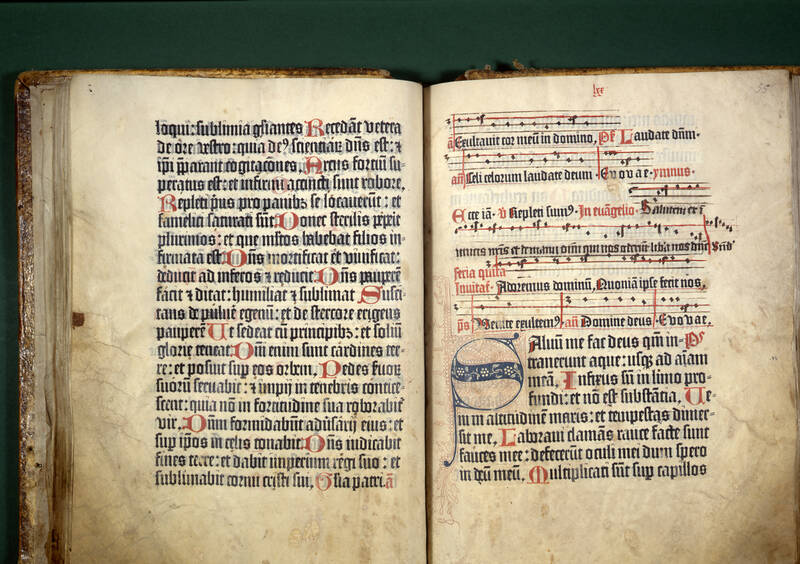 loqui: sublimia gl̃iantes Recedãt vetera
de ore vestro: quia de⁹ scienciaꝝ dñs est: ⁊
ip̃i p̃parant᷑ cogitacões. Arcus forciũ su-
peratus est: et infirmi accincti sunt robore.
Repleti prius pro panibꝫ se locauerũt: et
famelici saturati sũt. Donec sterilis peperit
plurimos: et que m̃ltos habebat filios in-
firmata est. Dñs mortificat et viuificat:
deducit ad inferos ⁊ reducit. Dñs pauperẽ
facit ⁊ ditat: humiliat ⁊ sublimat. Susci-
tans de puluere egenũ: et de stercore erigens
pauperẽ. Ut sedeat cũ principibꝫ: et soliũ
glorie teneat. Dñi enim sunt cardines ter-
re: et posuit sup eos orbem. Pedes sctoꝝ
suorũ seruabit: ⁊ impij in tenebris contice-
scent: quia nõ in fortitudine sua roborabit᷑
vir. Dñm formidabũt adũsarij eius: et
sup ip̃os in celis tonabit. Dñs iudicabit
fines terre: et dabit imperium regi suo: et
sublimabit cornu cristi sui. Gl̃ia patri. a
lxx
55
añ Exultauit cor meũ in domino. Ps̃ Laudate dñm.
añ Celi celorum laudate deum. Euouae. ymnus.
Ecce iã. v̷ Repleti sum⁹. In euãgelio. Salutem ex i
nimicis nr̃is et de manu om̃i qui nos oderunt liba nos dñe Bñd̃
feria quita
Inuitat᷑. Adoremus dominũ, Quoniã ipse fecit nos,
ps̃ Venite exultem⁹. añ Domine deus. Euouae.
Saluũ me fac deus qm̃ in- Ps̃
trauerunt aque: usqꝫ ad aĩam
meã. Infixus sũ in limo pro-
fundi: et nõ est substãcia. Ve-
ni in altitudinẽ maris: et tempestas dimer-
sit me. Laboraui clamãs rauce facte sunt
fauces mee: defecerũt oculi mei dum spero
in dẽũ meũ. Multiplicati sũt sup capillos